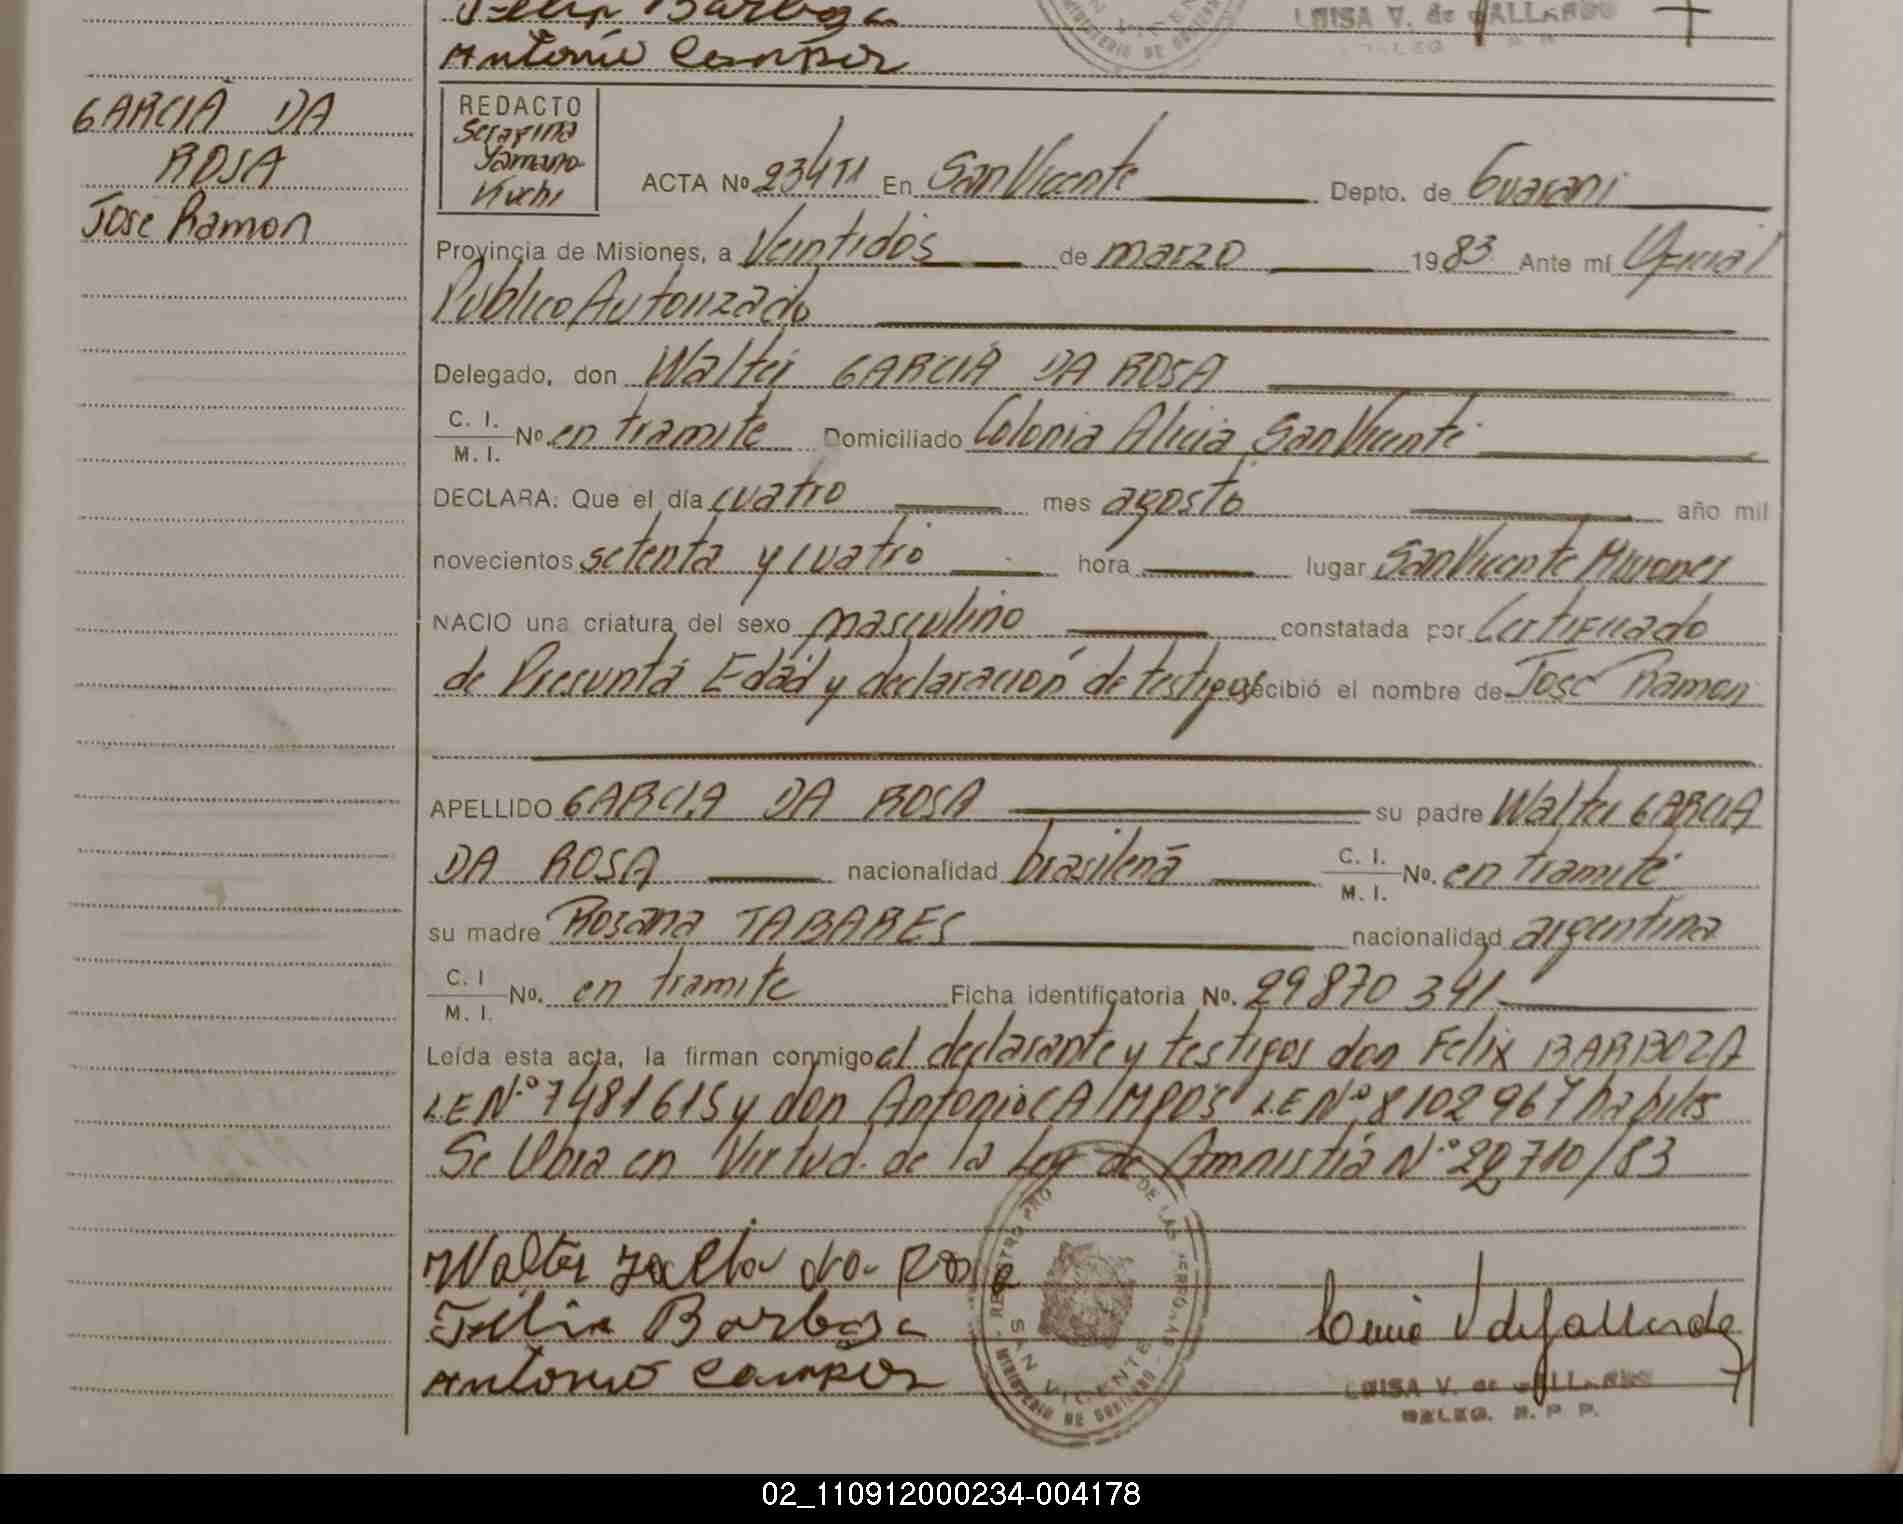 Felix Barboza
Antonio Campos
LUISA V. de GALLARDO
GARCIA DA
ROSA
Jose Ramon
REDACTO
Serafina
Yamano
Kuchi
ACTA No En San Vicente Depto. de Guarani
Provincia de Misiones, a Veintidos de marzo 1983 Ante mí Oficial
Publico Autorizado
Delegado, don Walter GARCIA DA ROSA
C. I. M. I. No. en tramite Domiciliado Colonia Alicia San Vicente
DECLARA: Que el día cuatro mes agosto año mil
novecientos setenta y cuatro hora lugar San Vicente Misiones
NACIO una criatura del sexo masculino constatada por Certificado
de Presunta Edad y declaración de testigos recibió el nombre de José Ramon
APELLIDO GARCIA DA ROSA su padre Walter GARCIA
DA ROSA nacionalidad brasileña C. I. M. I. No. en tramite
su madre Rosana TABARES nacionalidad argentina
C. I M. I. No. en tramite Ficha identificatoria No. 29870341
Leída esta acta, la firman conmigo el declarante y testigos don Felix BARBOZA
LE N° 7481615 y don Antonio CAMPOS LE N° 8102967 habiles
Se Labra en Virtud de la Ley de Amnistia N° 22710/83
Walter da Rosa
Felix Barboza
Antonio Campos
REGISTRO PRO DE LAS PERSONAS
SAN VICENTE
MINISTERIO DE GOBIERNO
LUISA V. de GALLARDO
DELEG. R. P. P.
02_110912000234-004178